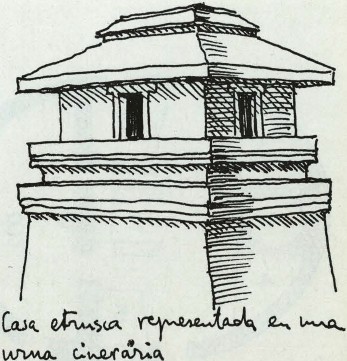 Casa etrusca representada en una
urna cinerària